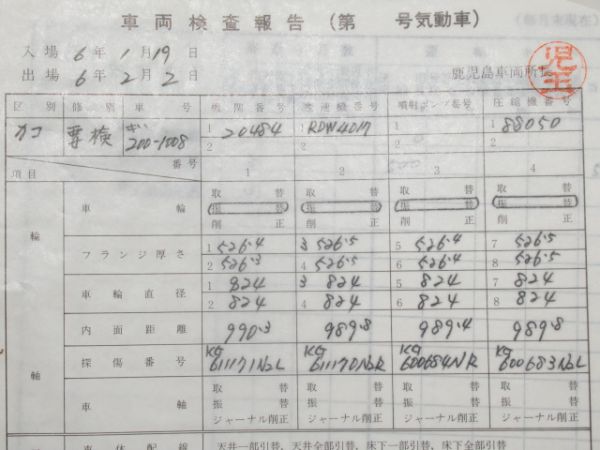 車両検査報告（第 号気動車）
入場 6年 1月19日
出場 6年 2月 2日
鹿児島車両所長
区別 修別 車号 機関番号 変速機番号 噴射ポンプ番号 圧縮機番号
カコ 要検 キハ 200-1508 1 20484 1 RDW4017 1 1 88050
2 2 2 2
番号
項目 1 2 3 4
輪
車輪 取替 取替 取替 取替
振替 振替 振替 振替
削正 削正 削正 削正
フランジ厚さ 1 526.4 3 526.5 5 526.4 7 526.5
2 526.3 4 526.5 6 526.4 8 526.5
車輪直径 1 824 3 824 5 824 7 824
2 824 4 824 6 824 8 824
内面距離 990.3 989.8 989.4 989.8
探傷番号 KG 61171NbL KG 61170NbR KG 600684NR KG 600683NbL
軸
車軸 取替 取替 取替 取替
振替 振替 振替 振替
ジャーナル削正 ジャーナル削正 ジャーナル削正 ジャーナル削正
車体配線 天井一部引替，天井全部引替，床下一部引替，床下全部引替